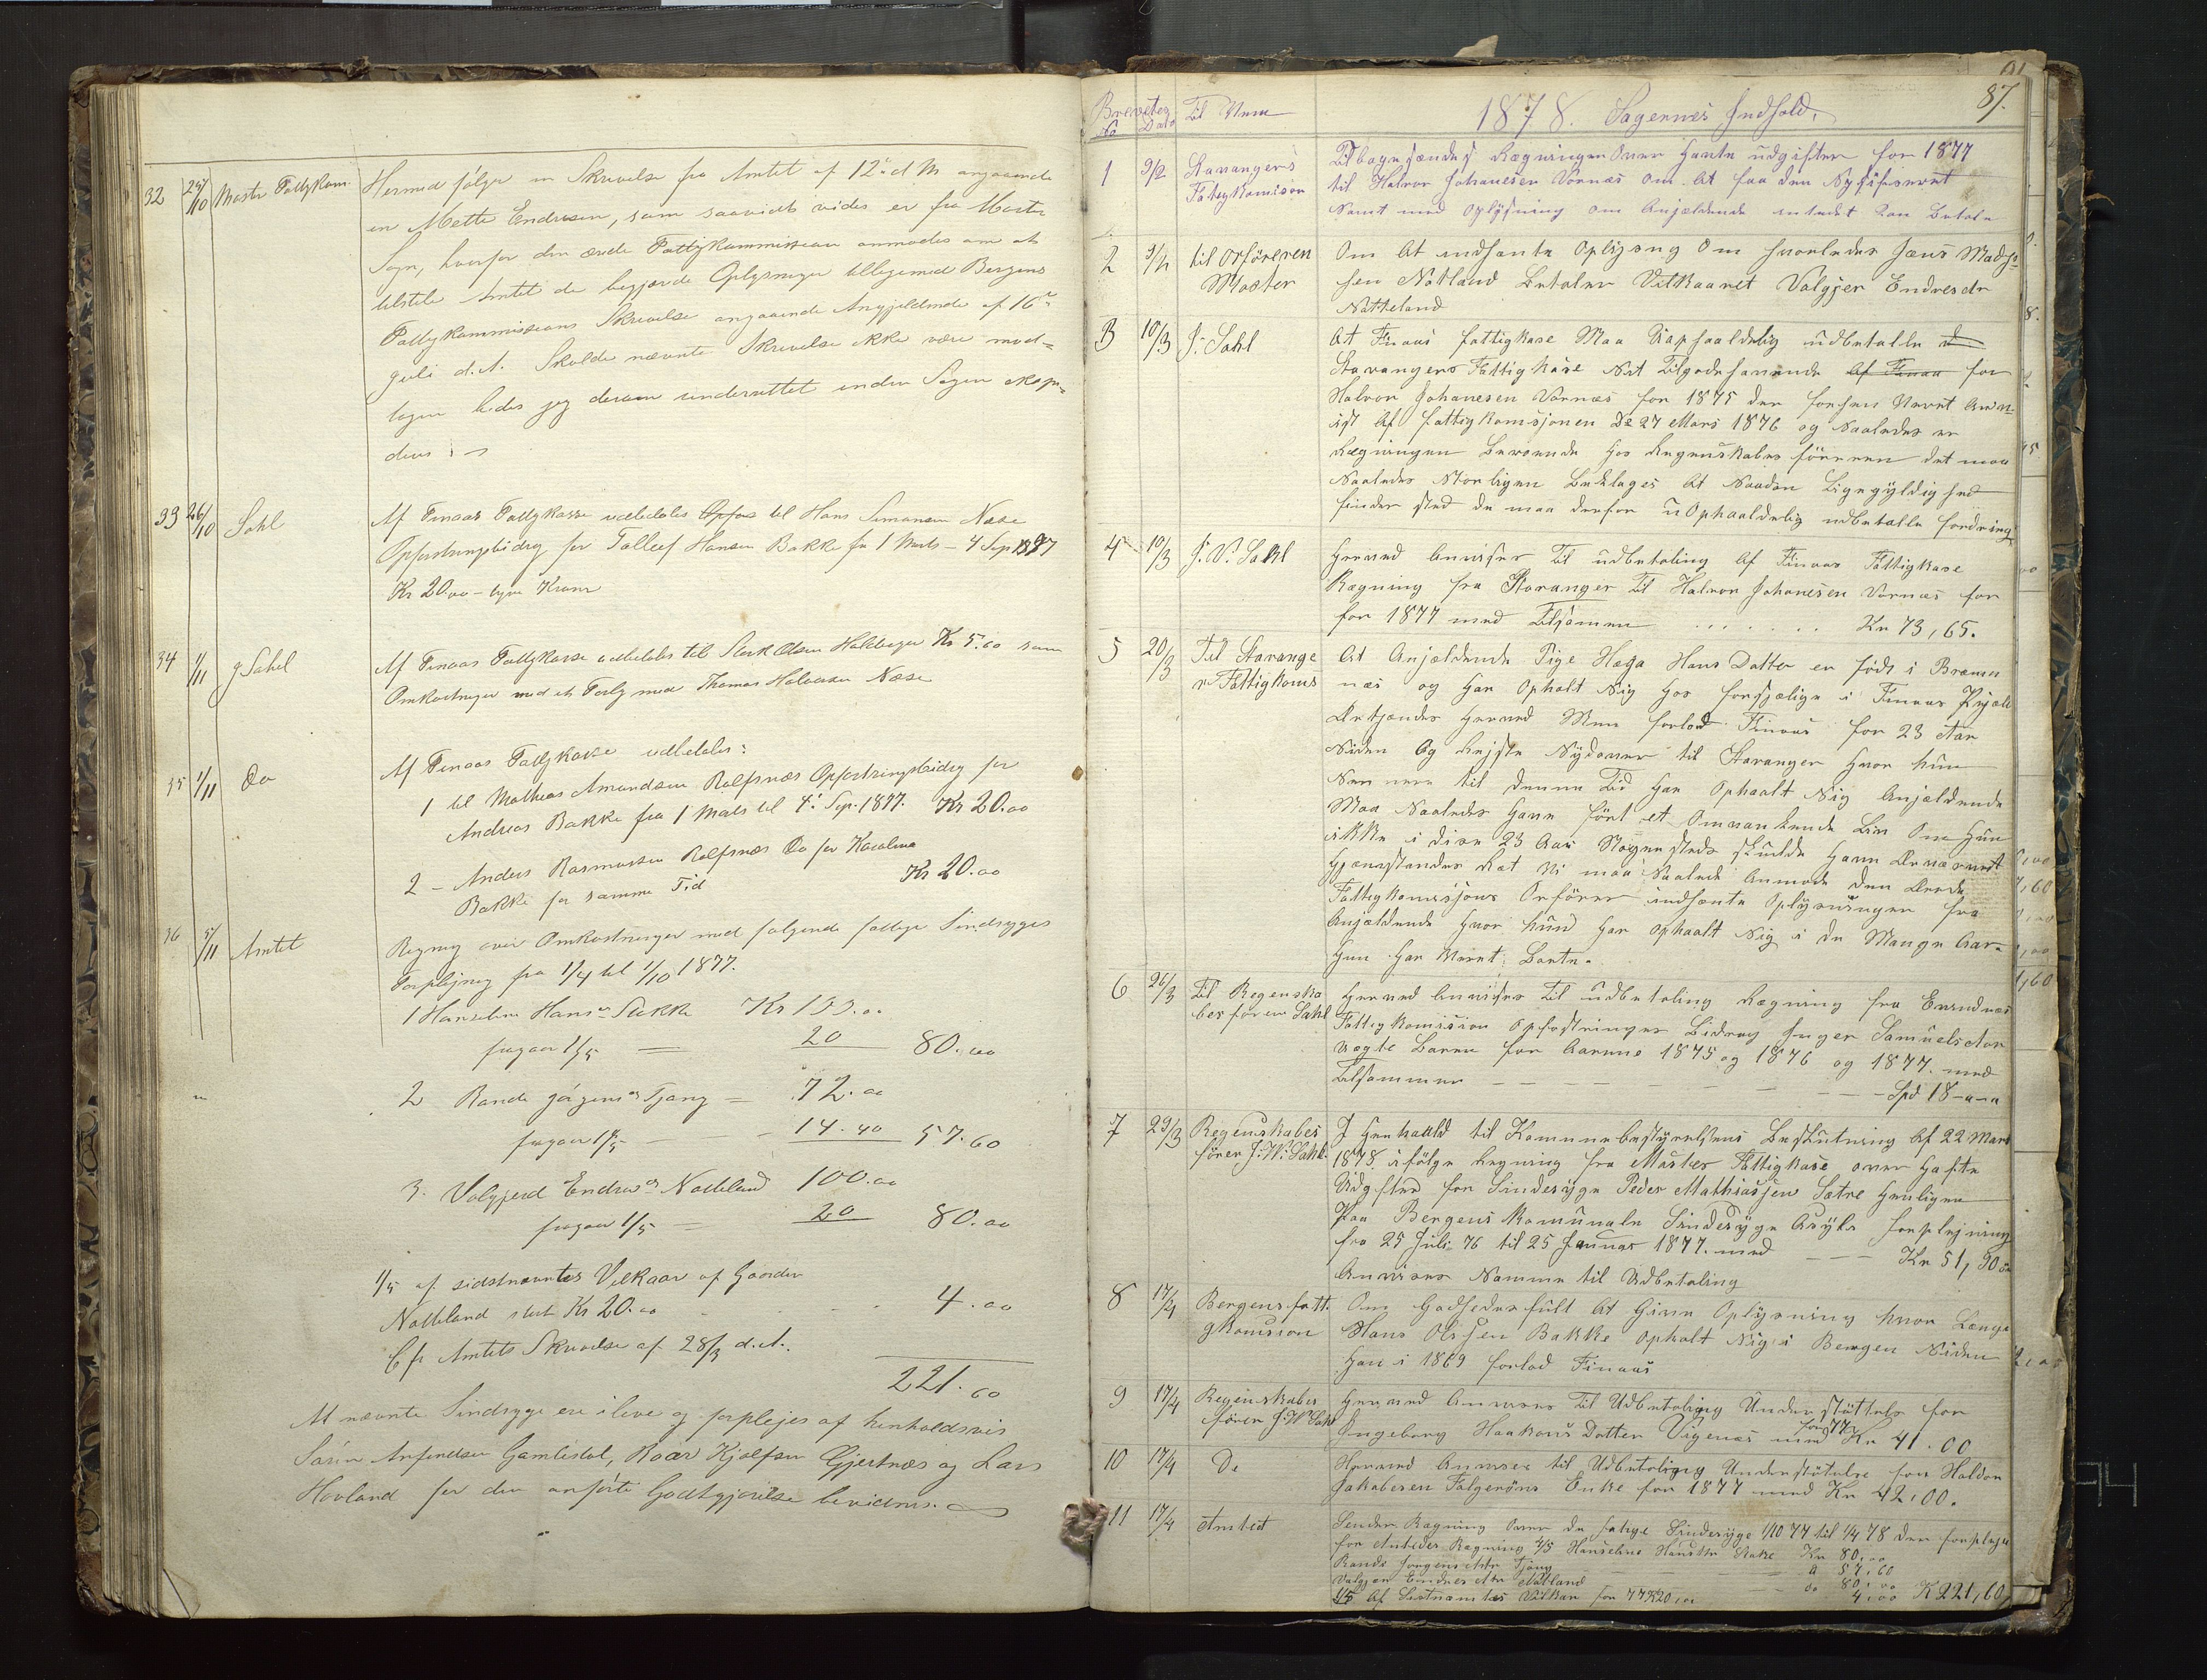 32 25/10 Moster Fattigkom. Hermed følger en Skrivelse fra Amtet af 12te d M angaaende
en Mette Endresen, som saavidt vides er fra Moster
Sogn, hvorfor den ærede Fattigkommission anmodes om at
tilstile Amtet de begjærde Oplysninger tilligemed Bergens
Fattigkommissions Skrivelse angaaende Angjeldende af 16de
Juli d.A. Skulde nævnte Skrivelse ikke være mod=
tagen bedes jeg derom underrettet inden Sagen expe=
deres
33 26/10 Sahl Af Finaas Fattigkasse udbetales til Hans Simonsen Næse
Opfostringsbidrag for Tollef Hansen Bakke fra 1 Marts - 4 Sep 1877
Kr 20.00 - tyve Kroner
34 1/11 J Sahl Af Finaas Fattigkasse udbetales til Sterk Olsen Kr 5.60 som
Omkostninger med et Forlig med Thomas Halvorsen Næse
35 1/11 Do Af Finaas Fattigkasse udbetales:
1 til Mathias Amundsen Rolfsnæs Opfostringsbidrag for
Andreas Bakke fra 1 Marts til 4. Sep. 1877. Kr 20.00
2 - Anders Rasmussen Rolfsnæs Do for Karolina
Bakke for samme Tid Kr 20.00
36 5/11 Amtet Regning over Omkostninger med følgende fattige Sindssyges
Forplejning fra 1/4 til 1/10 1877.
1 Hanseline Hansdr Stakke Kr 100.00
fragaar 1/5 — 20 80.00
2 Rande Jørgensdr Tjong — 72.00
fragaar 1/5 — 14.40 57.60
3. Valgjerd Endresdr Natteland 100.00
fragaar 1/5 — 20 80.00
1/5 af sidstnævntes Vilkaar af Gaarden
Natteland stort Kr 20.00 4.00
Cfr Amtets Skrivelse af 28/3 d.A.
221.60
At nævnte Sindsyge ere ilive og forplejes af henholdsvis
Søren Anfindsen Gamlestøl, Roar Kjelfsen Gjertnæs og Lars
Hovland for den anførte Godtgjørelse bevidnes.
87.
Brevets No Dato Til Hvem 1878. Sagernes Indhold.
1 9/2 Stavangers Fatigkomision Tilbagesændes Regningen over havte udgifter for 1877
til Halvor Johanesen Vornæs om at faa den
Samt med Oplysning om Anjældende intedet kan betale
2 9/2 til Orføreren Moster Om at indhente Oplysing om hvorledes Jens Mads
sen Natland Betaler Vilkaaret Valgjer Endresdr
Natteland
3 10/3 J. Sahl At Finaas fattigkase Maa Uophaaldelig udbetalle
Stavangers Fattigkase Sit Tilgodehavende af Finaa for
Halvor Johanesen Vornæs for 1875 den forhen Været Anv
ist Af fattigkomisjonen De 27 Mars 1876 og Saaledes er
Regningen Beroende hos Regenskabsföreren det maa
Saaledes Storligen Beklages At Saadan Ligegyldighed
finder sted de maa derfor uophaaldelig udbetalle fordring
4 10/3 J. W. Sahl Hermed Anvises Til udbetaling Af Finaas Fattigkase
Rægning fra Stavanger Til Halvor Johanesen Vornæs for
for 1877 med Tilsamen . . . . . . Kr 73,65.
5 20/3 Til Stavanger Fattigkoms At Anjældende Pige Haga Hans Datter er födt i Bremn
næs og har Opholt Sig hos forsjælige i Finaas
Herved Men forlod Finaas for 23 Aar
Siden Og Rejste Sydover til Stavanger hvor hun
nu til denne Tid har Ophaalt Sig Anjældende
Maa Saaledes have fört et Omvankende Liv Om hun
ikke i dise 23 Aar Nogensteds skulde have
Ret Vi maa Saalede Anmode den Ærede
Fattigkomisjons Orförer indhente Oplysninger fra
Anjældende hvor hund har ophaalt Sig i de Mange Aar
hun har Været Borte.
6 26/3 Til Regenskabesföreren Sahl Herved Anvises Til Udbetaling Regning fra
Fattigkomision Opfostringer Bidrag Inger Samuelsdtr
uegte Baren for Aarene 1875 og 1876 og 1877. med
Tilsammen — — — — — Spd 18-"-"
7 29/3 Regenskabesförer J: W: Sahl. I Henhaald til Komunebestyrelsens Beslutning Af 22 Mars
1878. ifölge Regning fra Mosters Fattigkase over Hafte
Udgifter for Sindesyge Peder Mathiassen Sætre
Paa Bergens Komunale Sindesyge Asyls forplejning
fra 25 Juli 76 til 25 Januar 1877. med — — Kr 51,90
Anvises Samme til Udbetaling
8 17/4 Bergens fattigkomision Om Godhedesfult At Give Oplysning hvor Lenge
Hans Olsen Bakke opholt Sig i Bergen Siden
han i 1869 forlod Finaas
9 17/4 Regenskabsförer J. W Sahl Herved Anvises Til Udbetaling Understöttelse for
Ingeborg Haakons Datter Vigenæs for 77 med Kr 41.00
10 17/4 Do Herved Anvises til Udbetaling Understötelse for Haldor
Jakobesen Folgeröns Enke for 1877 med Kr 42,00.
11 17/4 Amted Sender Regning Over de fatige Sindesyge 1/10 77 til 1/4 78 den forpleje
for Amtedes Regning 4/5 Hanseline Hansdtr Stake Kr 80,00
Rande Jorgensdtr Tjong — — — " 57,60
Valgjer Endresdtr Natland — — — do 80,00
1/5 Af Sistnæmtes Vilkar for 77 K20,00 4,00 K 221,60